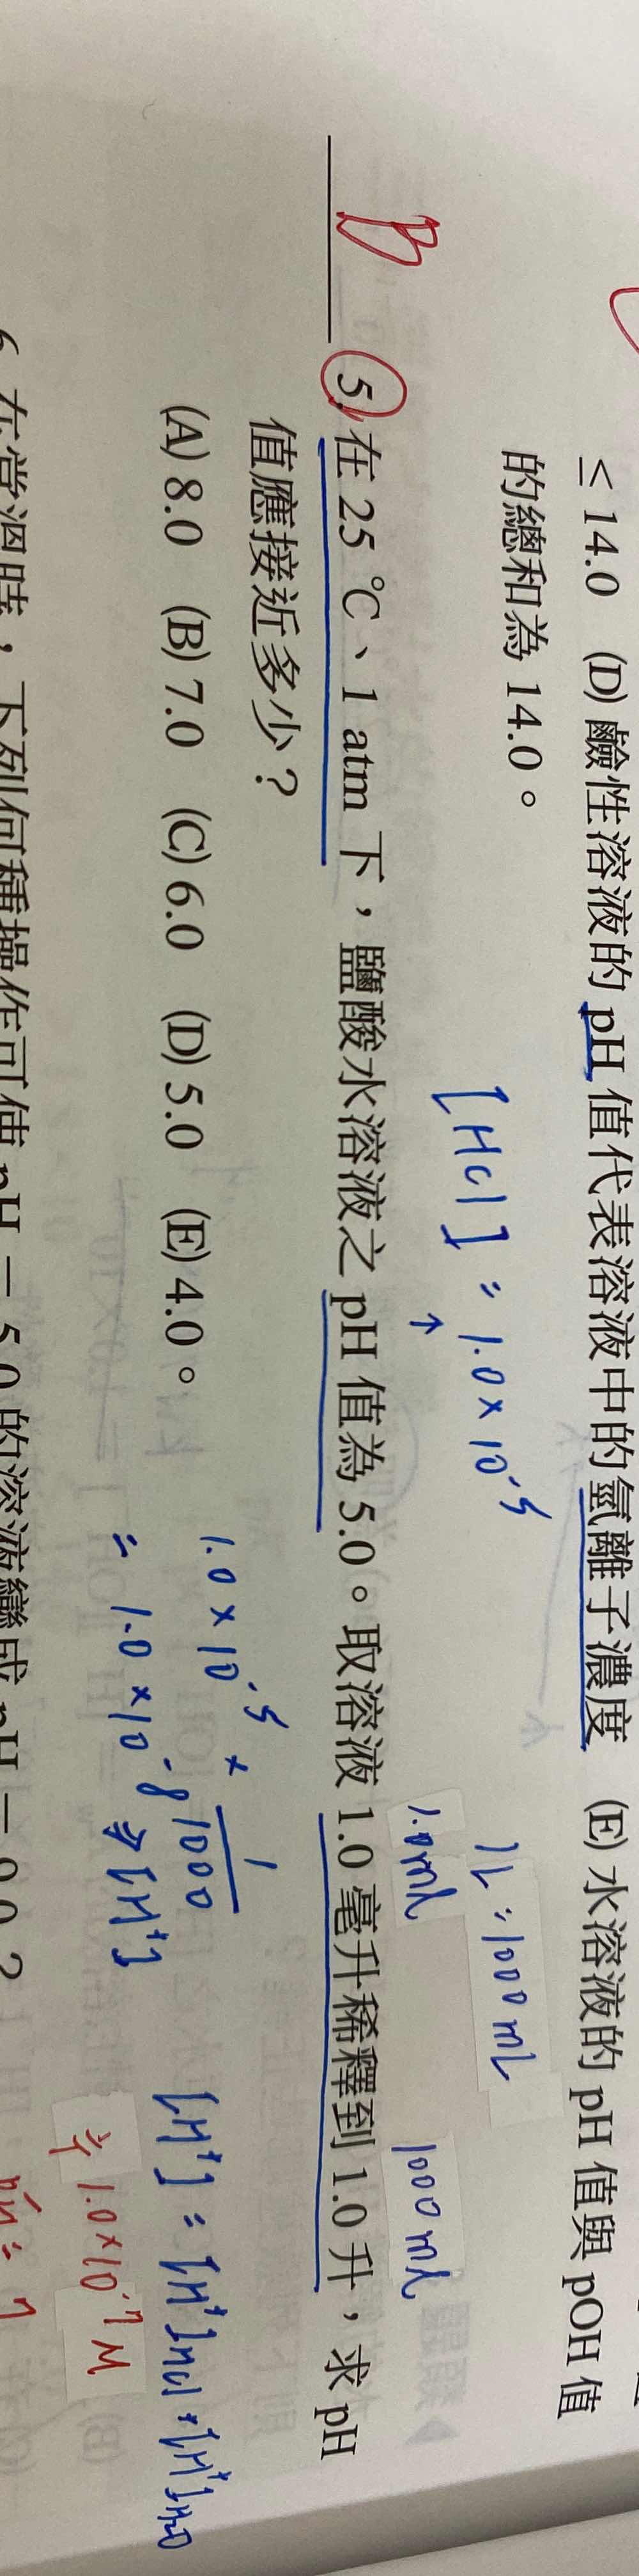 ≤ 14.0 (D) 鹼性溶液的 pH 值代表溶液中的氫離子濃度 (E) 水溶液的 pH 值與 pOH 值
的總和為 14.0。
[HCl] = 1.0 × 10⁻⁵
1L = 1000 mL
1.0mL
1000 mL
B
5. 在 25 ℃、1 atm 下，鹽酸水溶液之 pH 值為 5.0。取溶液 1.0 毫升稀釋到 1.0 升，求 pH
值應接近多少？
(A) 8.0 (B) 7.0 (C) 6.0 (D) 5.0 (E) 4.0。
1.0 × 10⁻⁵ × 1/1000
= 1.0 × 10⁻⁸ ⇒ [H⁺]
[H⁺] = [H⁺]HCl + [H⁺]H₂O
≒ 1.0×10⁻⁷ M
pH = 7
6. 在常溫時，下列何種操作可使 pH = 5.0 的溶液變成 pH = 9.0？